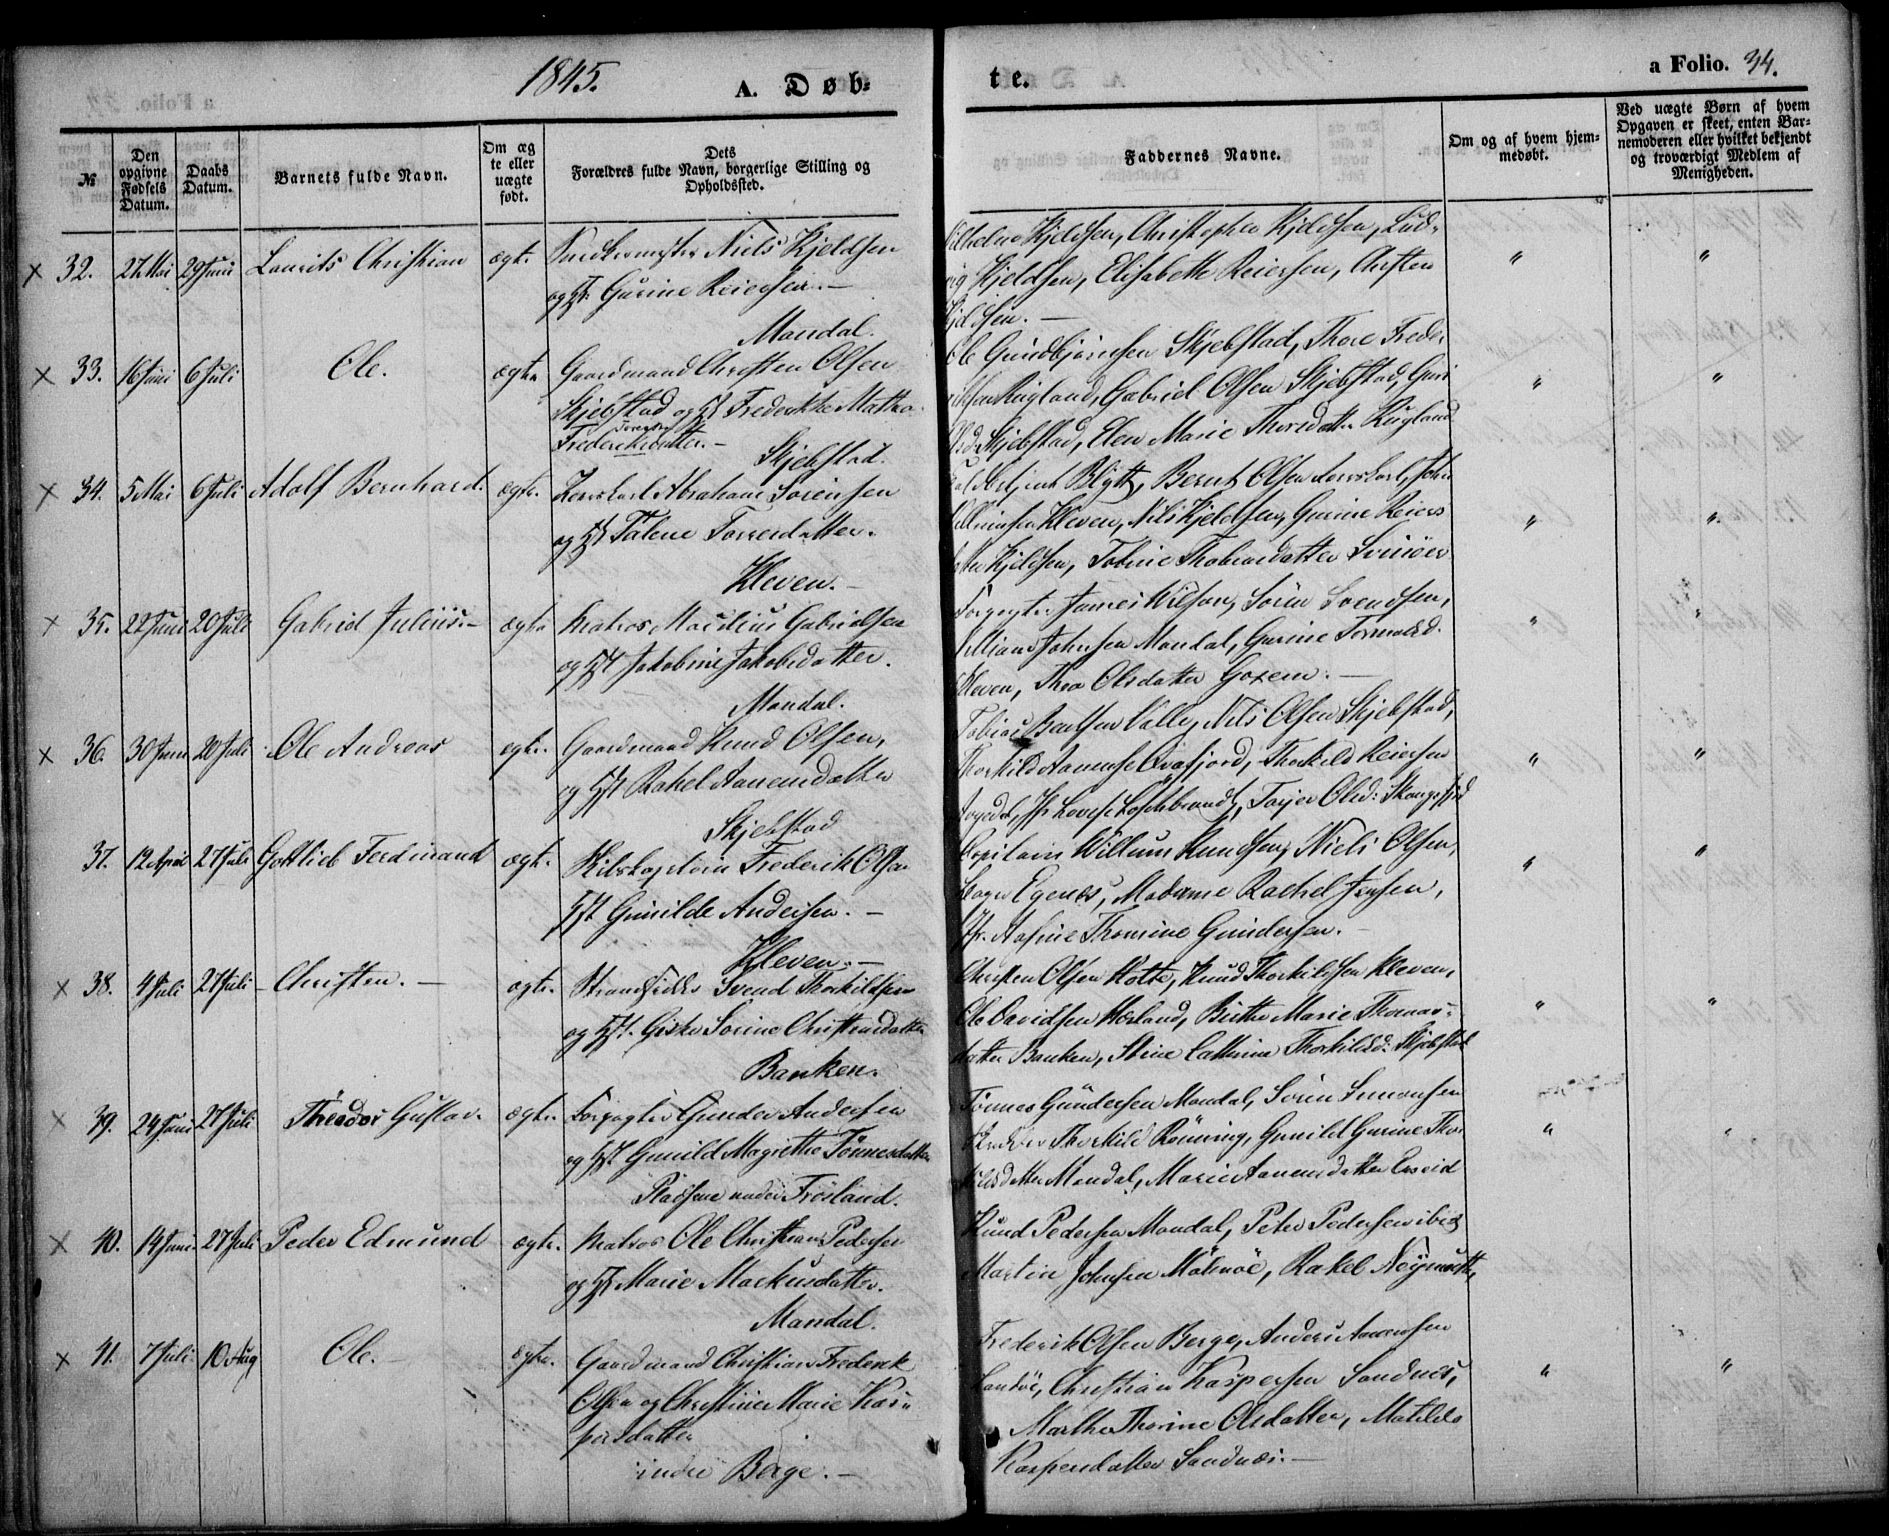 1845.
A. Døb-
te.
a Folio. 34.
№
Den opgivne Fødsels Datum.
Daabs Datum.
Barnets fulde Navn.
Om æg te eller uægte født.
Dets
Forældres fulde Navn, borgerlige Stilling og
Opholdssted.
Faddernes Navne.
Om og af hvem hjem-
medøbt.
Ved uægte Børn af hvem
Opgaven er skeet, enten Bar-
nemoderen eller hvilket bekjendt
og troværdigt Medlem af
Menigheden.
× 32. 27 Mai 29 Juni Laurits Christian ægte Niels Kjeldsen
og Hst. Gurine Reiersen. —
Mandal.
Kjeldsen, Christopher Kjeldsen, Lud-
Kjeldsen, Elisabeth Reiersen, Christen
" "
× 33. 16 Juni 6 Juli Ole. ægte Gaardmand Christen Olsen
Skjebstad og Hst Frederikke Matha
Frederiksdatter. —
Skjebstad.
Ole Gundbjørnsen Skjebstad, Thore Frede-
Rugland, Gabriel Olsen Skjebstad, Guri
Skjebstad, Elen Marie Thoresdatter Rugland
" "
× 34. 5 Mai 6 Juli Adolf Bernhard. ægte. Abraham Sørensen
og Hst Talene Torresdatter.
Kleven. —
Blytt, Bernt Olsen
Kleven, Nils Kjeldsen, Gurine Reiers
Kjeldsen, Tobine Thobiasdatter Svinöer
" "
× 35. 22 Juni 20 Juli Gabriel Julius. — ægte Matros Gabrielsen
og Hst Jakobine Jakobsdatter.
Mandal.
James Wilson, Sören Svendsen,
Johnsen Mandal, Gurine
Kleven, Thea Olsdatter
" "
× 36. 30 Juni 20 Juli Ole Andreas ægte. Gaardmand Knud Olsen,
og Hst Rakel Aanensdatter
Skjebstad
Tobias Berntsen Valle, Nils Olsen Skjebstad,
Thorkild Aanensen Thorkild Reiersen
Lovise Torjer
" "
37. 12 April 27 Juli Gottlieb Ferdinand ægte. Skibskaptein Frederik Olsen
Hst Gunilde Andersen. —
Kleven. —
Capitain Willum Knudsen, Niels Olsen,
Egenes, Madame Rachel Jensen,
Thomine Gundersen. —
" "
× 38. 4 Juli 27 Juli Christen. — ægte. Strandsidder Svend Thorkildsen
og Hst. Giske Sorine Christensdatter
Banken.
Christen Olsen Holte, Knud Thorkildsen Kleven,
Ole Davidsen Birthe Marie Thomas-
datter Banken, Stine Cathrine Thorkildsd: Skjebstad
" "
× 39. 24 Juni 27 Juli Theodor Gustav. ægte. Gunder Andersen
og Hst. Gunild Magrethe Tönnesdatter
Pladsene under Frösland.
Tönnes Gundersen Mandal, Sören Simonsen
Thorkild Rönning, Gunild Gurine Thor
kildsdatter Mandal, Marie Aanensdatter
" "
× 40. 14 Juni 27 Juli Peder Edmund ægte. Matros Ole Christian Pedersen
og Hst Marie Markusdatter.
Mandal.
Knud Pedersen Mandal, Peter Pedersen ibid
Martin Johnsen Malmöe, Rakel
× 41. 7 Juli 10 Aug Ole. — ægte. Gaardmand Christian Frederik
Olsen og Christine Marie Kas-
persdatter
indre Berge. —
Frederik Olsen Berge, Anders Aanensen
Christian Kaspersen Sandnes,
Marthe Thorine Olsdatter, Matilde
Kaspersdatter Sandnes. —
" "